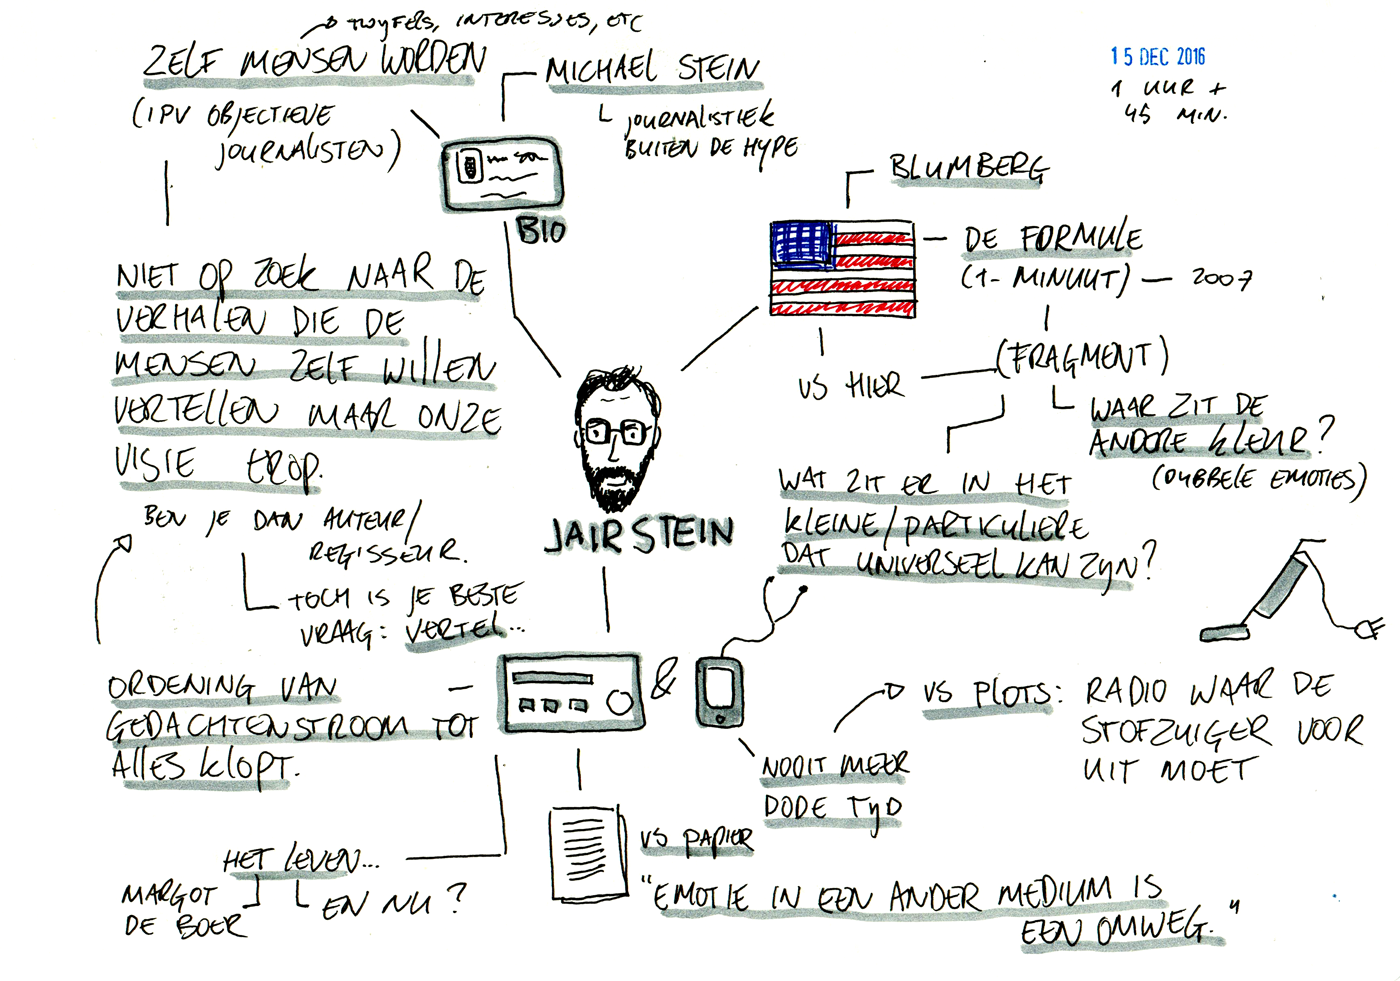 TWIJFELS, INTERESSES, ETC
ZELF MENSEN WORDEN
(IPV OBJECTIEVE
JOURNALISTEN)
MICHAEL STEIN
JOURNALISTIEK
BUITEN DE HYPE
15 DEC 2016
1 UUR +
45 MIN.
BIO
NIET OP ZOEK NAAR DE
VERHALEN DIE DE
MENSEN ZELF WILLEN
VERTELLEN MAAR ONZE
VISIE EROP.
BEN JE DAN AUTEUR/
REGISSEUR.
TOCH IS JE BESTE
VRAAG: VERTEL...
BLUMBERG
DE FORMULE
(1-MINUUT) — 2007
VS HIER
(FRAGMENT)
WAAR ZIT DE
ANDERE KLEUR?
(DUBBELE EMOTIES)
WAT ZIT ER IN HET
KLEINE/PARTICULIERE
DAT UNIVERSEEL KAN ZIJN?
JAIR STEIN
ORDENING VAN
GEDACHTENSTROOM TOT
ALLES KLOPT.
&
VS PLOTS: RADIO WAAR DE
STOFZUIGER VOOR
UIT MOET
NOOIT MEER
DODE TIJD
HET LEVEN...
MARGOT
DE BOER
EN NU?
VS PAPIER
"EMOTIE IN EEN ANDER MEDIUM IS
EEN OMWEG."